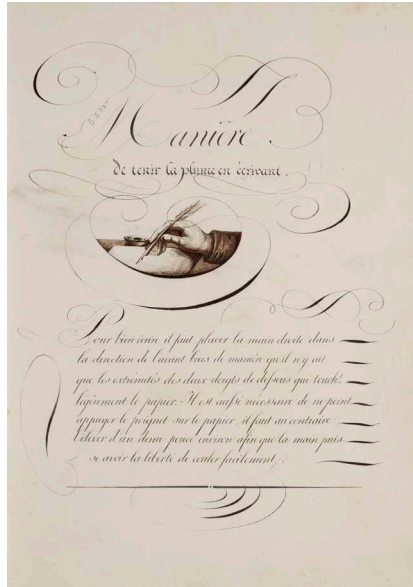 Manière
de tenir la plume en écrivant.
Pour bien écrire il faut placer la main droite dans
la direction de l'avant bras de manière qu'il n'y ait
que les extrémités des deux doigts de dessous qui touch.t
légèrement le papier. Il est aussi nécessaire de ne point
appuyer le poignet sur le papier, il faut au contraire
l'élever d'un demi pouce environ afin que la main puis-
se avoir la liberté de couler facilement.